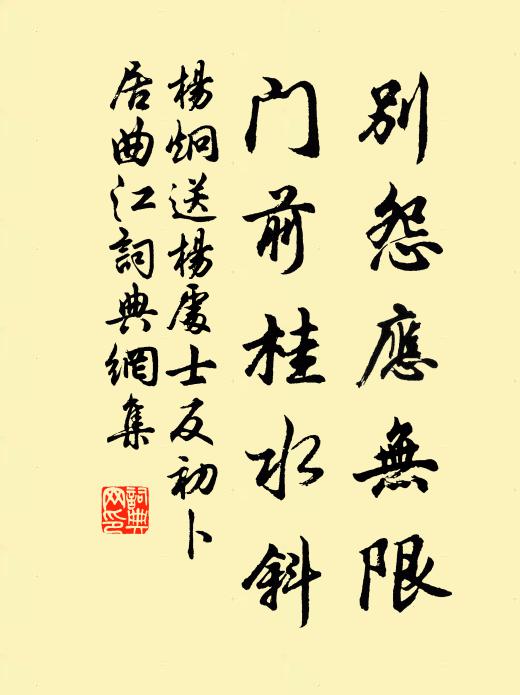 別怨應無限
門前桂水斜
楊炯送楊處士反初卜
居曲江詞典網集
詞典網印